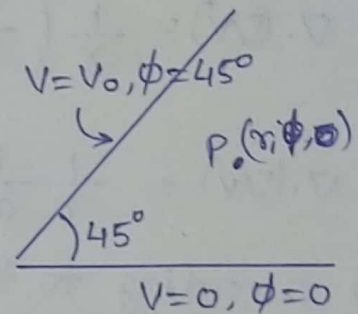 V=V₀, ϕ=45°
P.(r,ϕ,0)
45°
V=0, ϕ=0